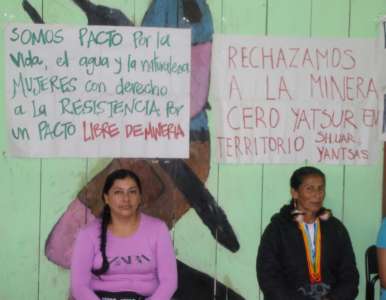 SOMOS PACTO Por la
Vida, el agua y la naturaleza
MUJERES con derecho
a La RESISTENCIA Por
un PACTO LIBRE DE MINERIA
RECHAZAMOS
A LA MINERA
CERO YATSUR EN
TERRITORIO SHUAR
YANTSAS